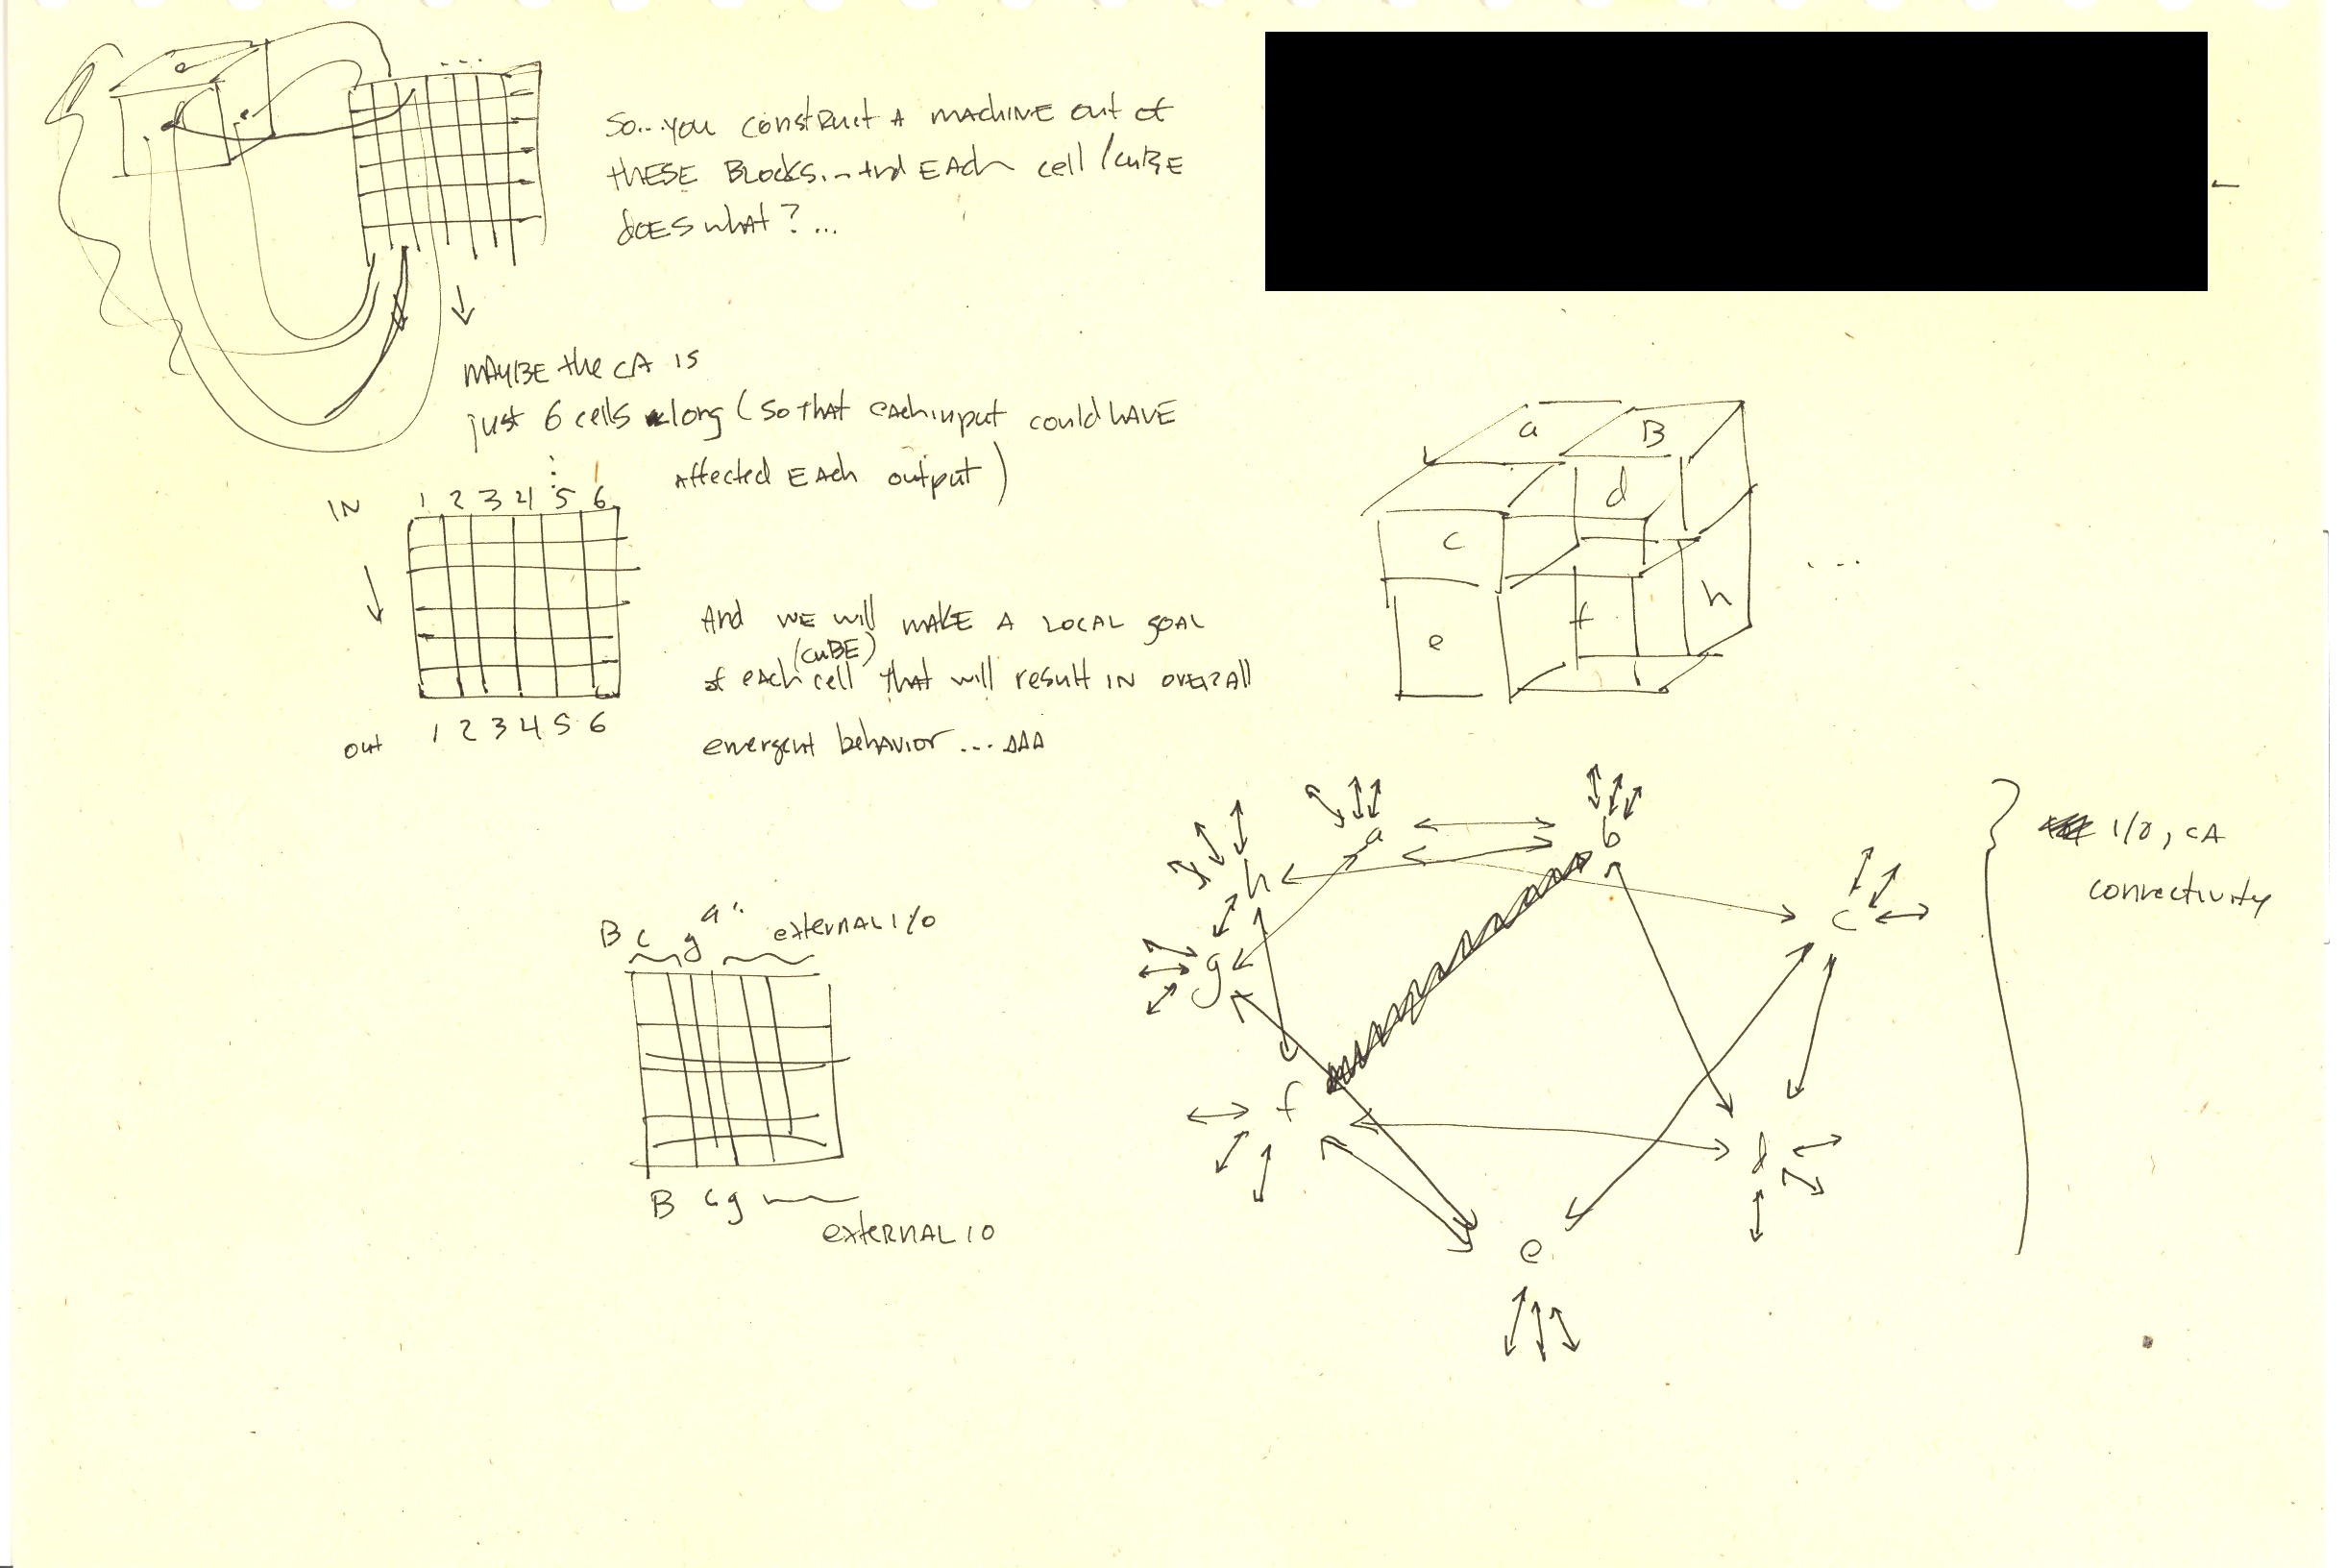 ...
So...you construct A machine out of
these Blocks...And Each cell/cube
does what?...
Maybe the CA is
just 6 cells long (so that each input could have
affected Each output)
IN 1 2 3 4 5 6
out 1 2 3 4 5 6
And we will make a local goal
(cube)
of each cell that will result in overall
emergent behavior...
a B
d
c
f h
e
...
B c g a external I/O
B c g
external IO
a b
h
c
g
f
d
e
I/O, CA
connectivity